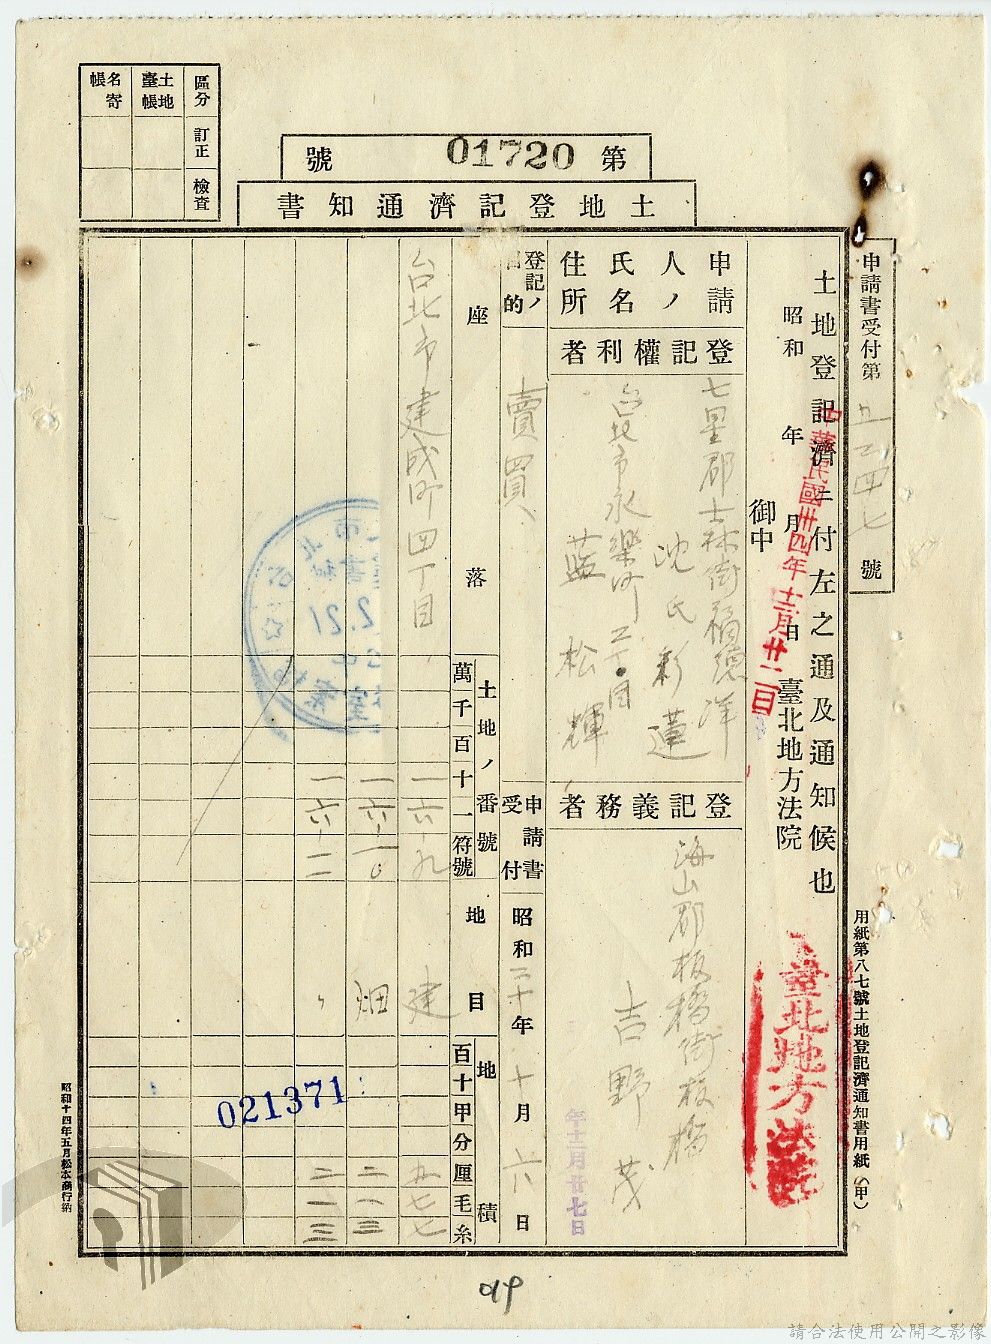 區分 訂正 檢查
土地臺帳
名寄帳
第 01720 號
土地登記濟通知書
申請書受付第 號
土地登記濟ニ付左之通及通知候也
昭和 年 月 日 臺北地方法院
中華民國卅四年十二月廿二日
臺北地方法院
御中
申請人ノ氏名住所
登記權利者
七星郡士林街福德洋
沈氏彩蓮
台北市永樂町 丁目
藍 松輝
登記義務者
海山郡板橋街板橋
吉野 茂
年十二月廿七日
登記ノ目的
賣買
申請書受付
昭和二十年十月六日
座落
土地ノ番號
萬千百十一符號
地目
地積
百十甲分厘毛糸
台北市建成町四丁目
一六、九
建
一六、一〇
畑
一六、一一
2.21
021371
用紙第八七號土地登記濟通知書用紙(甲)
昭和十四年五月松本商行納
請合法使用公開之影像